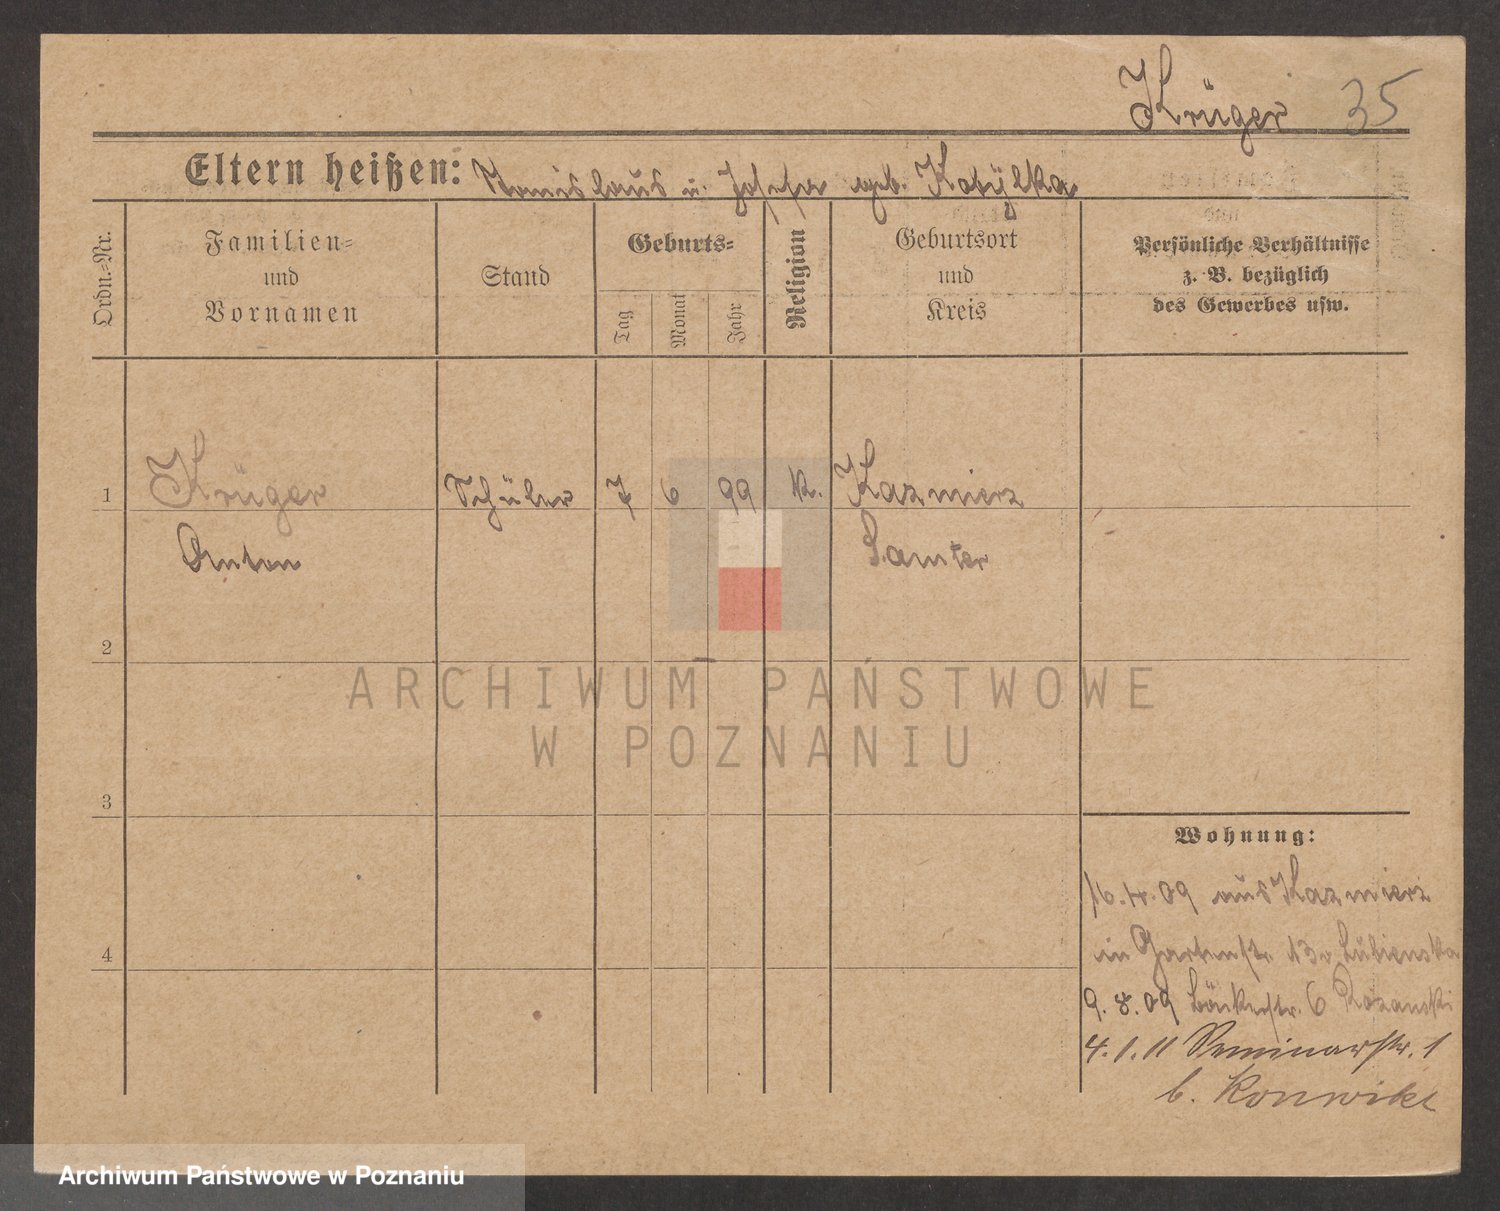 Krüger 35
Eltern heißen: Stanislaus u. Josefa geb. Kobylka
Ordn.-Nr.
Familien-
und
Vornamen
Stand
Geburts-
Tag
Monat
Jahr
Religion
Geburtsort
und
Kreis
Persönliche Verhältnisse
z. B. bezüglich
des Gewerbes usw.
1 Krüger Schüler 7 6 99 k. Kazmierz
Anton Samter
2
3
4
Wohnung:
16.4.09 aus Kazmierz
in Gartenstr. 13 v Lubienska
9.8.09 Bäckerstr. 6
4.1.11 Seminarstr. 1
b.
ARCHIWUM PAŃSTWOWE
W POZNANIU
Archiwum Państwowe w Poznaniu